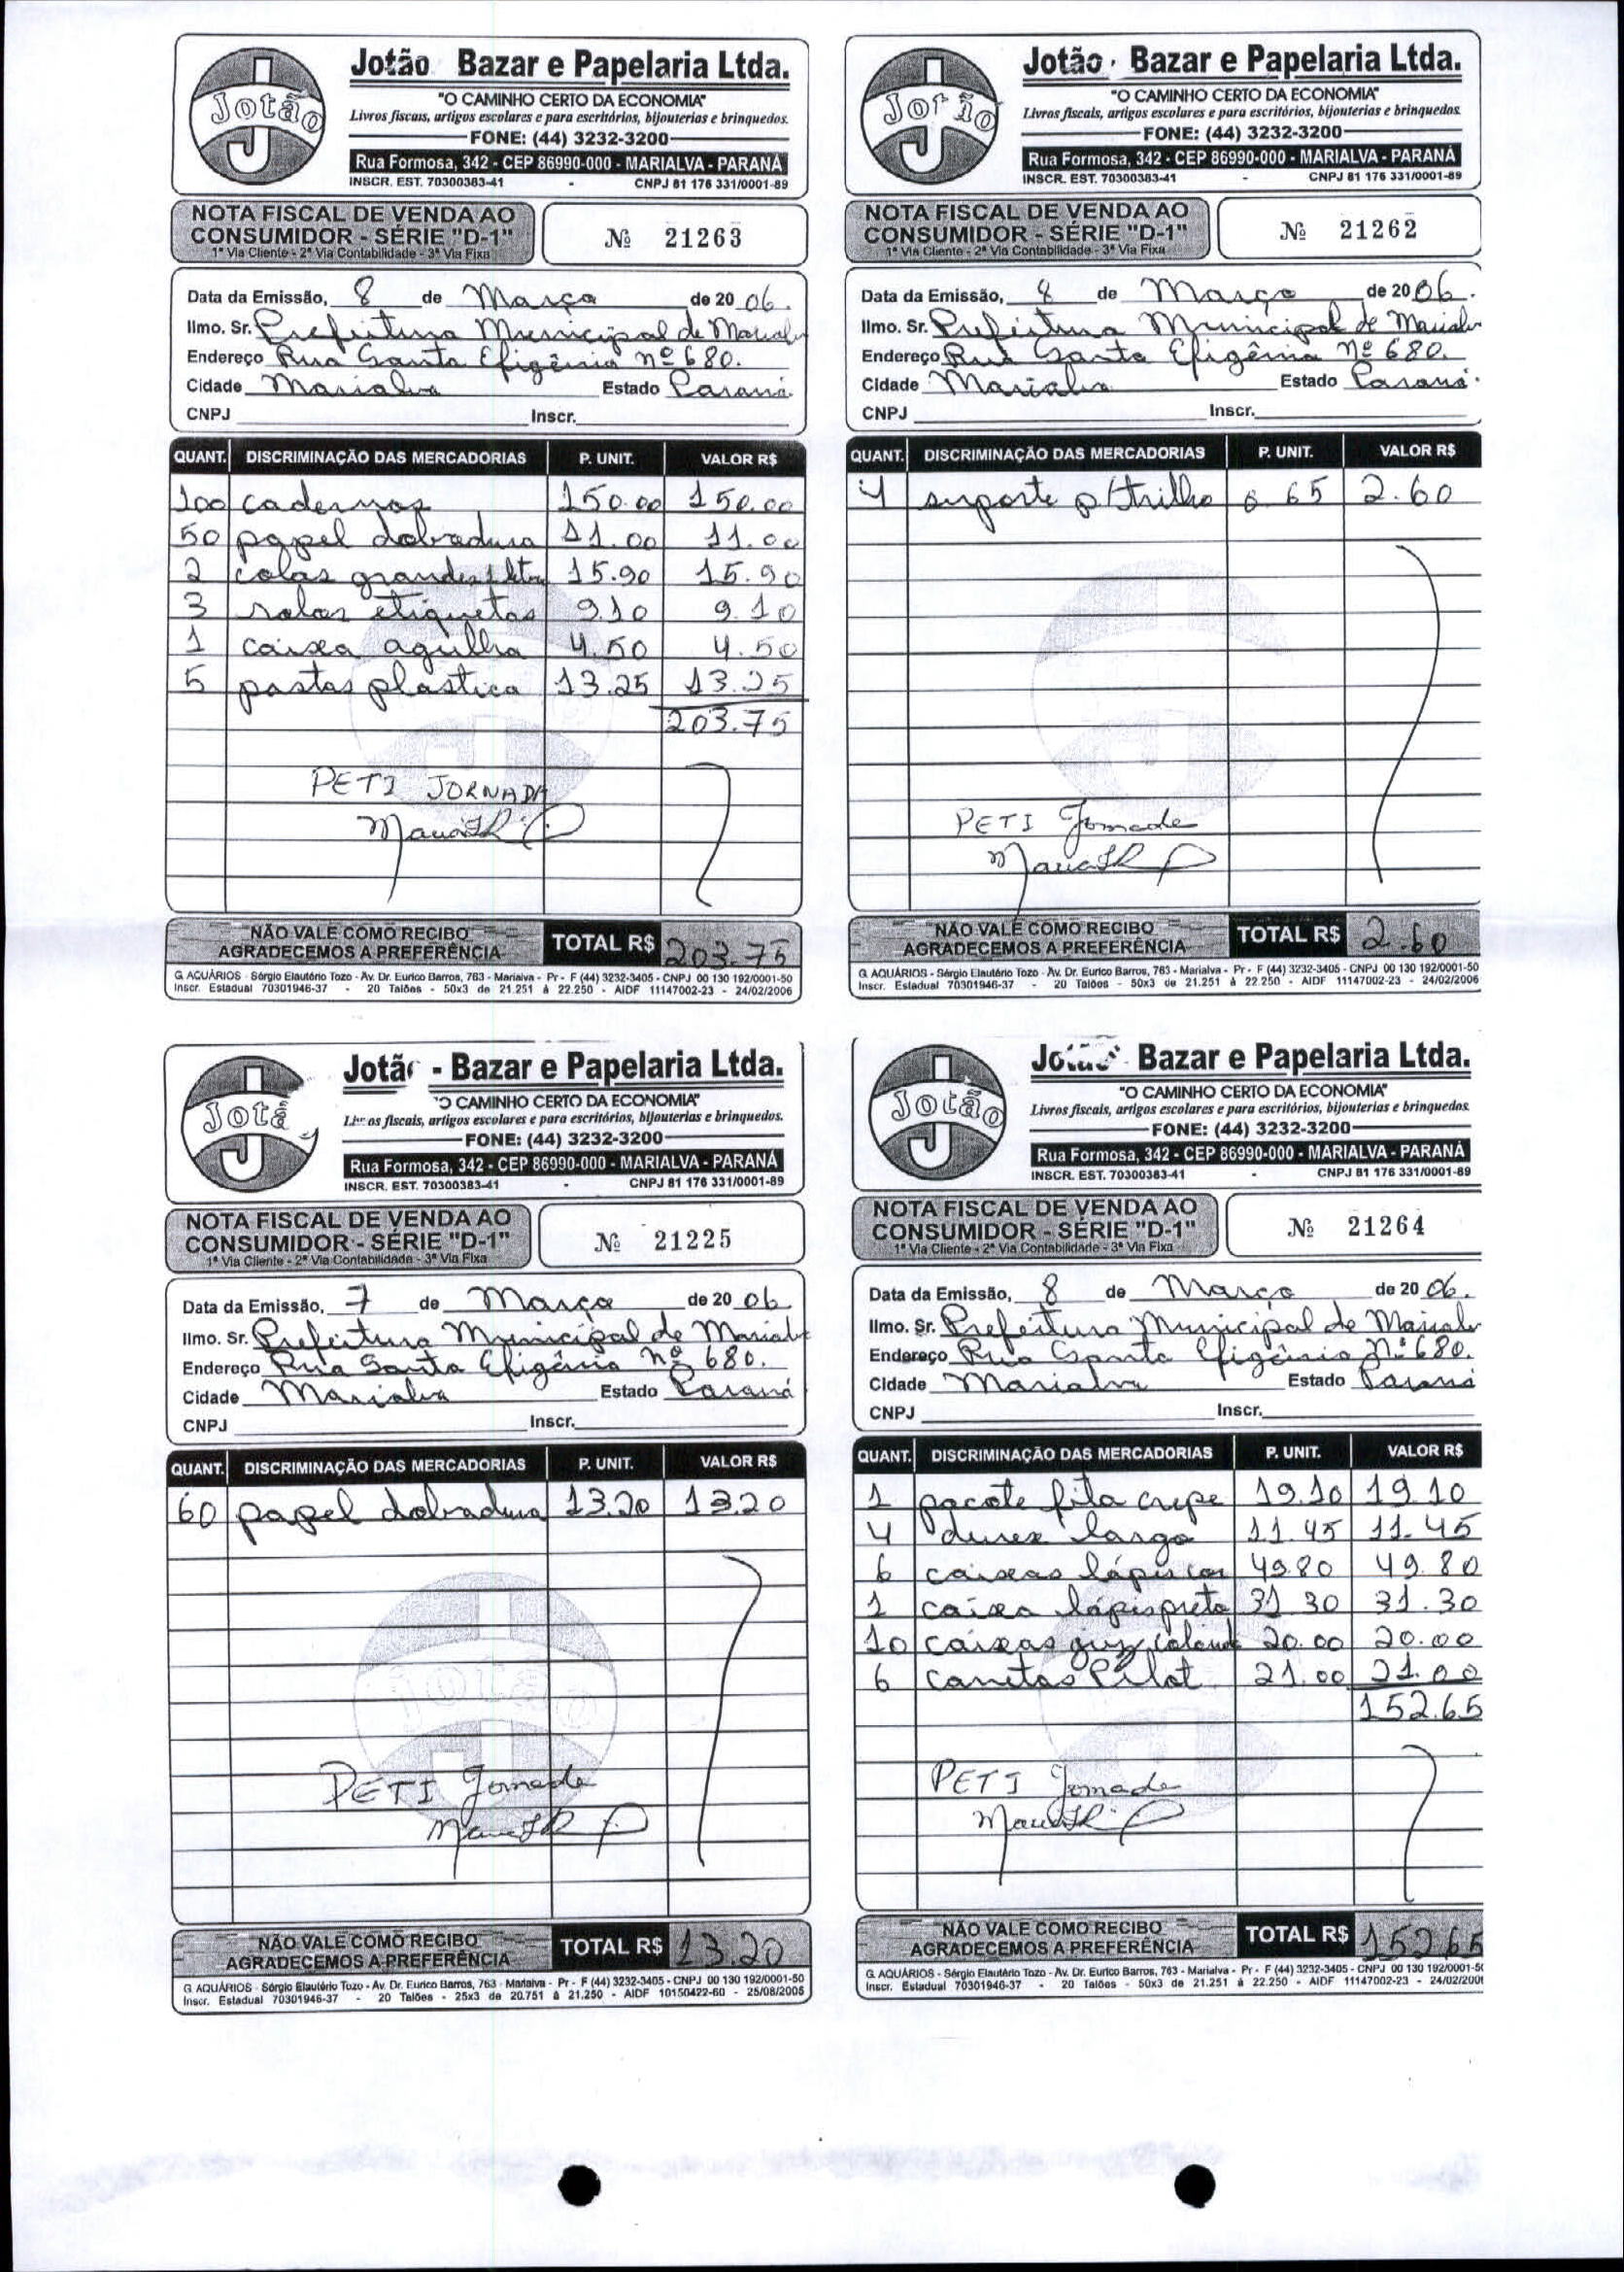 Jotão Bazar e Papelaria Ltda.
Jotão
"O CAMINHO CERTO DA ECONOMIA"
Livros fiscais, artigos escolares e para escritórios, bijouterias e brinquedos.
FONE: (44) 3232-3200
Rua Formosa, 342 - CEP 86990-000 - MARIALVA - PARANÁ
INSCR. EST. 70300383-41 - CNPJ 81 176 331/0001-89
NOTA FISCAL DE VENDA AO
CONSUMIDOR - SÉRIE "D-1"
1ª Via Cliente - 2ª Via Contabilidade - 3ª Via Fixa
Nº 21263
Data da Emissão, 8 de Março de 20 06.
Ilmo. Sr. Prefeitura Municipal de Marialv
Endereço Rua Santa Efigênia nº 680.
Cidade Marialva Estado Paraná.
CNPJ Inscr.
QUANT. DISCRIMINAÇÃO DAS MERCADORIAS P. UNIT. VALOR R$
100 cadernos 150.00 150.00
50 papel dobradura 11.00 11.00
2 colas grandes 15.90 15.90
3 rolos etiquetas 9.10 9.10
1 caixa agulha 4.50 4.50
5 pastas plástica 13.25 13.25
203.75
PETI JORNADA
NÃO VALE COMO RECIBO
AGRADECEMOS A PREFERÊNCIA
TOTAL R$ 203.75
G. AQUÁRIOS - Sérgio Elautério Tozo - Av. Dr. Eurico Barros, 763 - Marialva - Pr - F (44) 3232-3405 - CNPJ 00 130 192/0001-50
Inscr. Estadual 70301946-37 - 20 Talões - 50x3 de 21.251 à 22.250 - AIDF 11147002-23 - 24/02/2006
Jotão Bazar e Papelaria Ltda.
Jotão
"O CAMINHO CERTO DA ECONOMIA"
Livros fiscais, artigos escolares e para escritórios, bijouterias e brinquedos.
FONE: (44) 3232-3200
Rua Formosa, 342 - CEP 86990-000 - MARIALVA - PARANÁ
INSCR. EST. 70300383-41 - CNPJ 81 176 331/0001-89
NOTA FISCAL DE VENDA AO
CONSUMIDOR - SÉRIE "D-1"
1ª Via Cliente - 2ª Via Contabilidade - 3ª Via Fixa
Nº 21262
Data da Emissão, 8 de Março de 20 06.
Ilmo. Sr. Prefeitura Municipal de Marialv
Endereço Rua Santa Efigênia nº 680.
Cidade Marialva Estado Paraná.
CNPJ Inscr.
QUANT. DISCRIMINAÇÃO DAS MERCADORIAS P. UNIT. VALOR R$
4 suporte p/trilho 0.65 2.60
PETI Jornada
NÃO VALE COMO RECIBO
AGRADECEMOS A PREFERÊNCIA
TOTAL R$ 2.60
G. AQUÁRIOS - Sérgio Elautério Tozo - Av. Dr. Eurico Barros, 763 - Marialva - Pr - F (44) 3232-3405 - CNPJ 00 130 192/0001-50
Inscr. Estadual 70301946-37 - 20 Talões - 50x3 de 21.251 à 22.250 - AIDF 11147002-23 - 24/02/2006
Jotão - Bazar e Papelaria Ltda.
Jotã
"O CAMINHO CERTO DA ECONOMIA"
Livros fiscais, artigos escolares e para escritórios, bijouterias e brinquedos.
FONE: (44) 3232-3200
Rua Formosa, 342 - CEP 86990-000 - MARIALVA - PARANÁ
INSCR. EST. 70300383-41 - CNPJ 81 176 331/0001-89
NOTA FISCAL DE VENDA AO
CONSUMIDOR - SÉRIE "D-1"
1ª Via Cliente - 2ª Via Contabilidade - 3ª Via Fixa
Nº 21225
Data da Emissão, 7 de Março de 20 06
Ilmo. Sr. Prefeitura Municipal de Marialv
Endereço Rua Santa Efigênia nº 680.
Cidade Marialva Estado Paraná
CNPJ Inscr.
QUANT. DISCRIMINAÇÃO DAS MERCADORIAS P. UNIT. VALOR R$
60 papel dobradura 13.20 13.20
PETI Jornada
NÃO VALE COMO RECIBO
AGRADECEMOS A PREFERÊNCIA
TOTAL R$ 13.20
G. AQUÁRIOS - Sérgio Elautério Tozo - Av. Dr. Eurico Barros, 763 - Marialva - Pr - F (44) 3232-3405 - CNPJ 00 130 192/0001-50
Inscr. Estadual 70301946-37 - 20 Talões - 25x3 de 20.751 à 21.250 - AIDF 10150422-60 - 25/08/2005
Jotão Bazar e Papelaria Ltda.
Jotão
"O CAMINHO CERTO DA ECONOMIA"
Livros fiscais, artigos escolares e para escritórios, bijouterias e brinquedos.
FONE: (44) 3232-3200
Rua Formosa, 342 - CEP 86990-000 - MARIALVA - PARANÁ
INSCR. EST. 70300383-41 - CNPJ 81 176 331/0001-89
NOTA FISCAL DE VENDA AO
CONSUMIDOR - SÉRIE "D-1"
1ª Via Cliente - 2ª Via Contabilidade - 3ª Via Fixa
Nº 21264
Data da Emissão, 8 de Março de 20 06.
Ilmo. Sr. Prefeitura Municipal de Marialv
Endereço Rua Santa Efigênia nº 680.
Cidade Marialva Estado Paraná
CNPJ Inscr.
QUANT. DISCRIMINAÇÃO DAS MERCADORIAS P. UNIT. VALOR R$
1 pacote fita crepe 19.10 19.10
4 durex largo 11.45 11.45
6 caixas lápis cor 49.80 49.80
1 caixa lápis preto 31.30 31.30
10 caixas giz 20.00 20.00
6 canetas Pilot 21.00 21.00
152.65
PETI Jornada
NÃO VALE COMO RECIBO
AGRADECEMOS A PREFERÊNCIA
TOTAL R$ 152.65
G. AQUÁRIOS - Sérgio Elautério Tozo - Av. Dr. Eurico Barros, 763 - Marialva - Pr - F (44) 3232-3405 - CNPJ 00 130 192/0001-50
Inscr. Estadual 70301946-37 - 20 Talões - 50x3 de 21.251 à 22.250 - AIDF 11147002-23 - 24/02/200